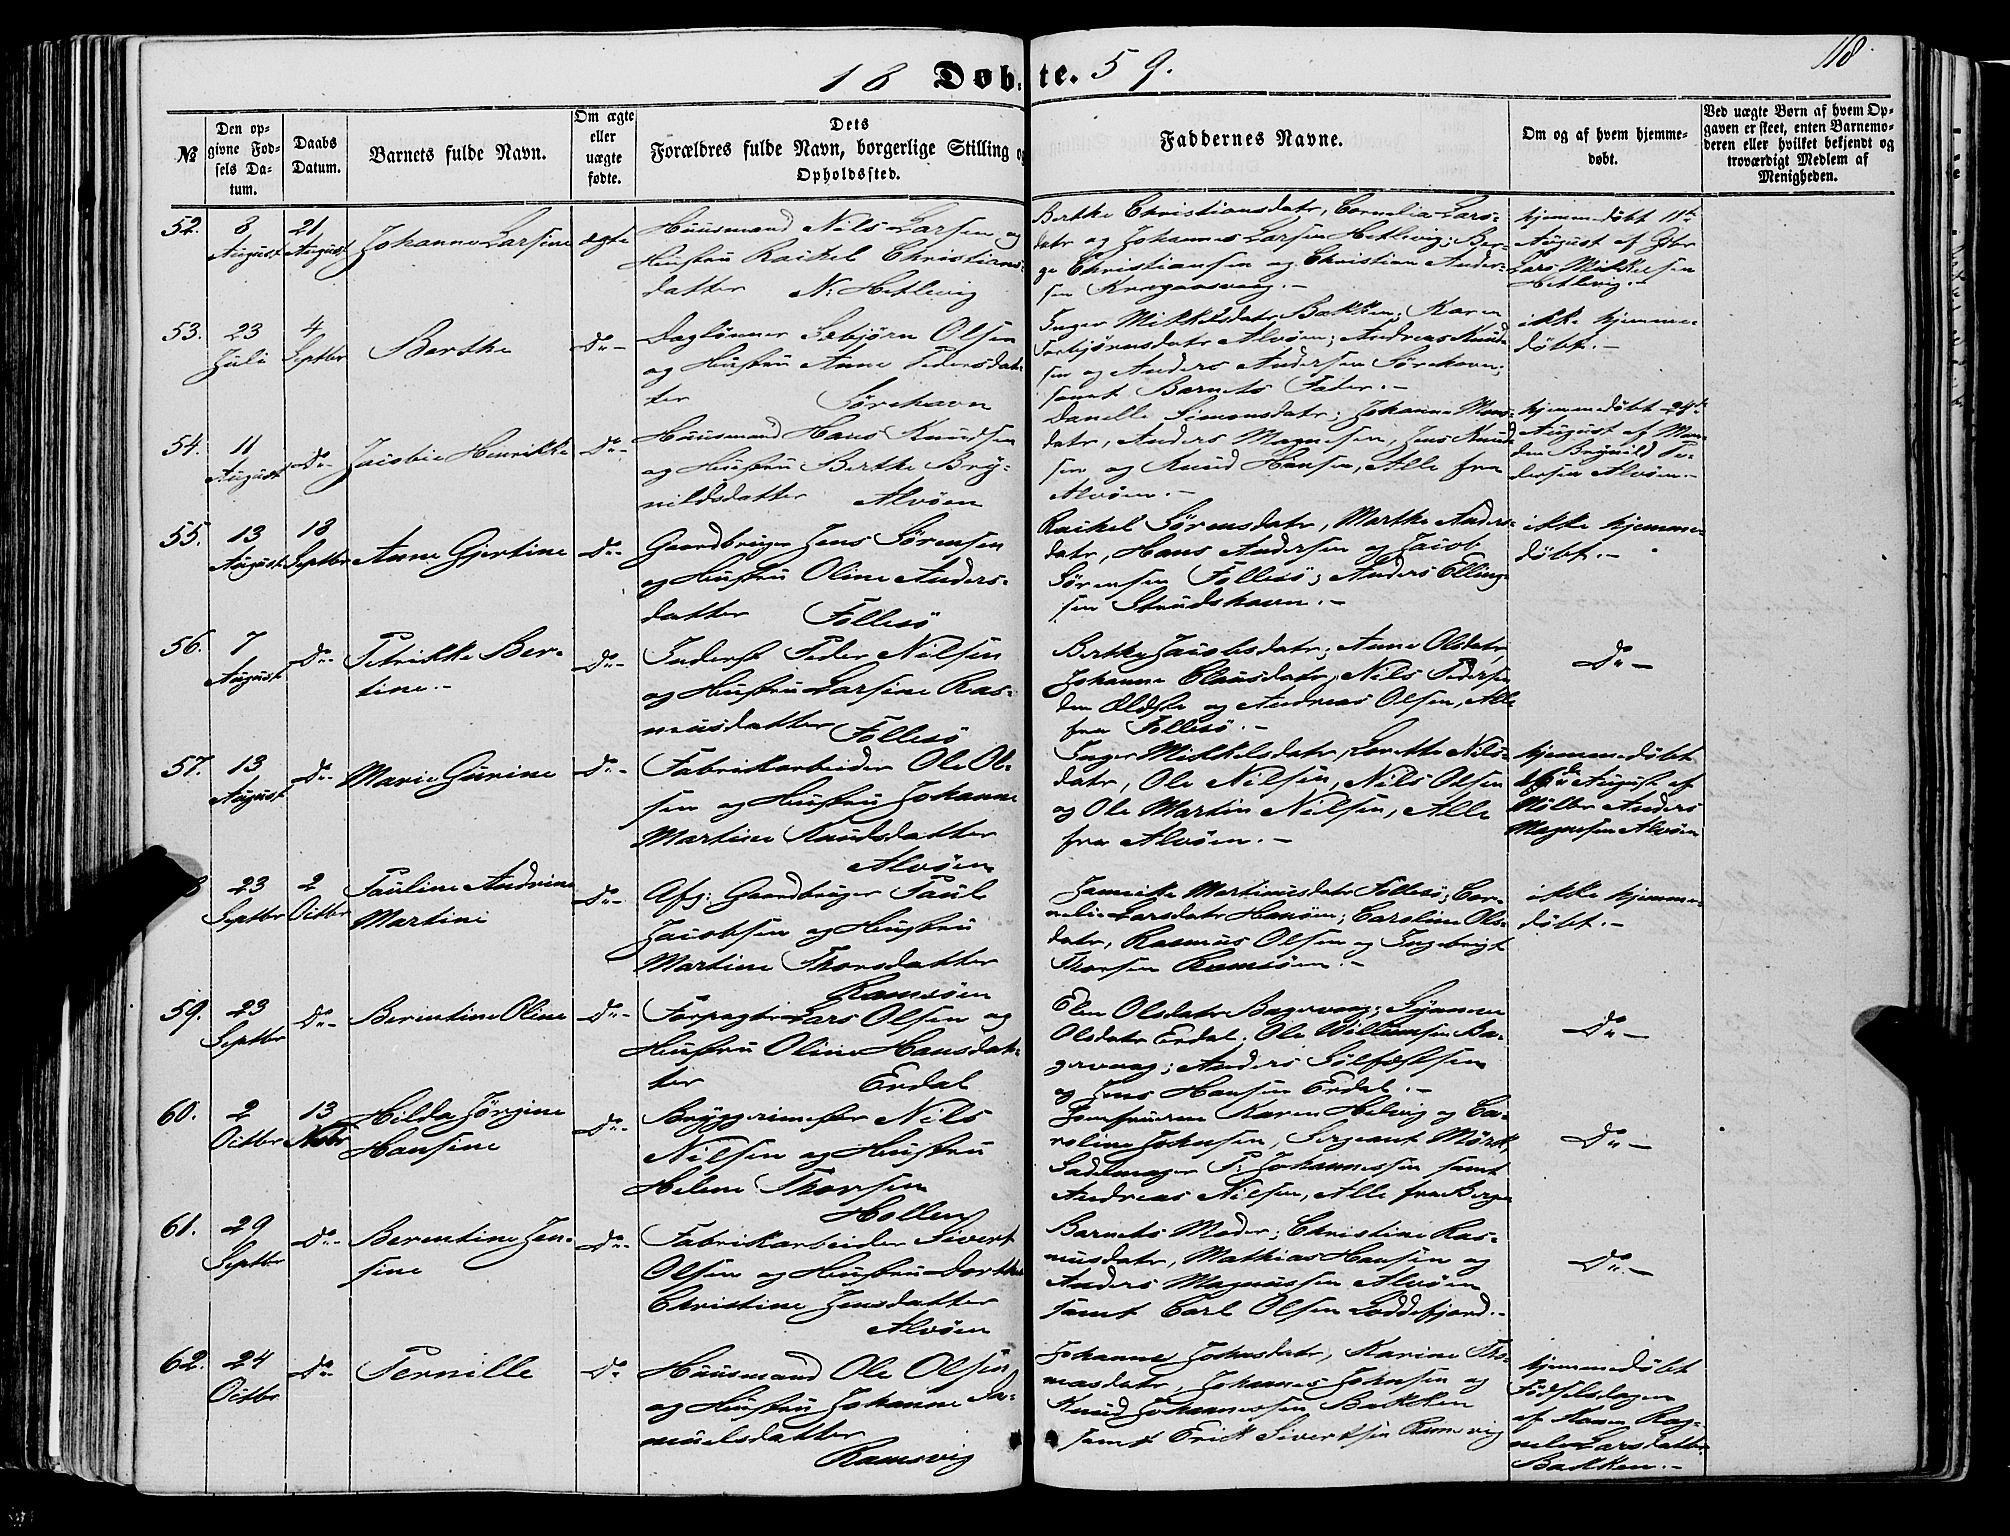 118
18 Døbte. 59.
№
Den opgivne Fødsels Datum.
Daabs Datum.
Barnets fulde Navn.
Om ægte eller uægte fødte.
Dets Forældres fulde Navn, borgerlige Stilling og Opholdssted.
Faddernes Navne.
Om og af hvem hjemmedøbt.
Ved uægte Børn af hvem Opgaven er skeet, enten Barnemoderen eller hvilket bekjendt og troværdigt Medlem af Menigheden.
52.
8 August
21 August
Johanne Larsine
ægte
Huusmand Nils Larsen og
Hustru Raikel Christians-
datter N: Hetlevig
Berthe Christiansdatr, Cornelia Lars-
datr og Johannes Larsen Hetlevig; Ber-
ge Christiansen og Christian Ander-
sen
hjemmedøbt 11te
August af Gbr
Lars Mikkelsen
Hetlevig.-
53.
23 Juli
4 Septbr
Berthe
Do-
Daglønner Sebjørn Olsen
og Hustru Anne Pedersdat-
ter Sørehavn
Inger Mikkelsdatr Bakken; Karen
Torbjørnsdatr Alvøen; Andreas Knud-
sen og Anders Andersen Sørehavn;
samt Barnets Fader.-
ikke hjemme-
døbt.-
54.
11 August
Do-
Jacobie Henrikke
Do-
Huusmand Hans Knudsen
og Hustru Berthe Bry-
nildsdatter Alvøen
Danelle Simonsdatr, Johanne Mons-
datr, Anders Magnesen, Jens Knud-
sen og Knud Hansen, Alle fra
Alvøen.-
hjemmedøbt 24de
August af Man-
den Brynild Pe-
dersen Alvøen-
55.
13 August
18 Septbr
Anne Gjertine
Do-
Gaardbruger Jens Sørensen
og Hustru Oline Anders-
datter Follesø
Raikel Sørensdatr, Marthe Anders-
datr, Hans Andersen og Jacob
Sørensen Follesø; Anders Elling-
sen Strudshavn.-
ikke hjemme-
døbt.-
56.
7 August
Do-
Petrikke Ber-
tine.-
Do-
Inderst Peder Nilsen
og Hustru Larsine Ras-
musdatter Follesø
Berthe Jacobsdatr; Anne Olsdatr,
Johanne Clausdatr, Nils Pedersen
den Ældste og Andreas Olsen, Alle
fra Follesø.-
Do-
57.
13 August
Do-
Marie Gurine
Do-
Fabrikarbeider Ole Ol-
sen og Hustru Johanne
Martine Knudsdatter
Alvøen
Inger Mikkelsdatr, Lorette Nils-
datr, Ole Nilsen, Nils Olsen
og Ole Martin Nilsen, Alle
fra Alvøen.-
hjemmedøbt
August af
Møller Anders
Magnesen Alvøen
8
23 Septbr
2 Octbr
Pauline Andrine
Martine
Do-
Afg: Gaardbruger Paul
Jacobsen og Hustru
Martine Thorsdatter
Ramsøen
Jannike Martinusdatr Follesø; Cor-
nelia Larsdatr Hanøen; Caroline Ols-
datr, Rasmus Olsen og Ingebrigt
Thorsen Ramsøen.-
ikke hjemme-
døbt.-
59.
23 Septbr
Do-
Berentine Oline
Do-
Forpagter Lars Olsen og
Hustru Oline Hansdat-
ter Erdal
Elen Olsdatr Bagervaag; Synneve
Olsdatr Erdal; Ole Willumsen Ba-
gervaag; Anders Sølfestsen
og Jens Hansen Erdal.-
Do-
60.
2 Octbr
13 Novbr
Hilda Jørgine
Hansine
Do-
Bryggerimester Nils
Nilsen og Hustru
Helene Thorsen
Hollen
Jomfruerne Karen Helvig og Ca-
roline Johnsen, Sergeant Mørk,
Sadelmager P: Johannessen samt
Andreas Nilsen, Alle fra Bergen
Do-
61.
29 Septbr
Do-
Berentine Jen-
sine
Do-
Fabrikarbeider Sivert
Olsen og Hustru Dorthe
Christine Jensdatter
Alvøen
Barnets Moder; Christine Ras-
musdatr, Mathias Hansen og
Anders Magnussen Alvøen
samt Carl Olsen Loddefjord.-
Do-
62.
24 Octbr
Do-
Pernille
Do
Huusmand Ole Olsen
og Hustru Johanne Sa-
muelsdatter
Ramsvig
Johanne Johnsdatr, Karine Tho-
masdatr, Johannes Johnsen og
Knud Johannessen Bakken
samt Erik Sivertsen Ramsvig
hjemmedøbt
Fødselsdagen
af Konen Rag-
nele Larsdatter
Bakken.-